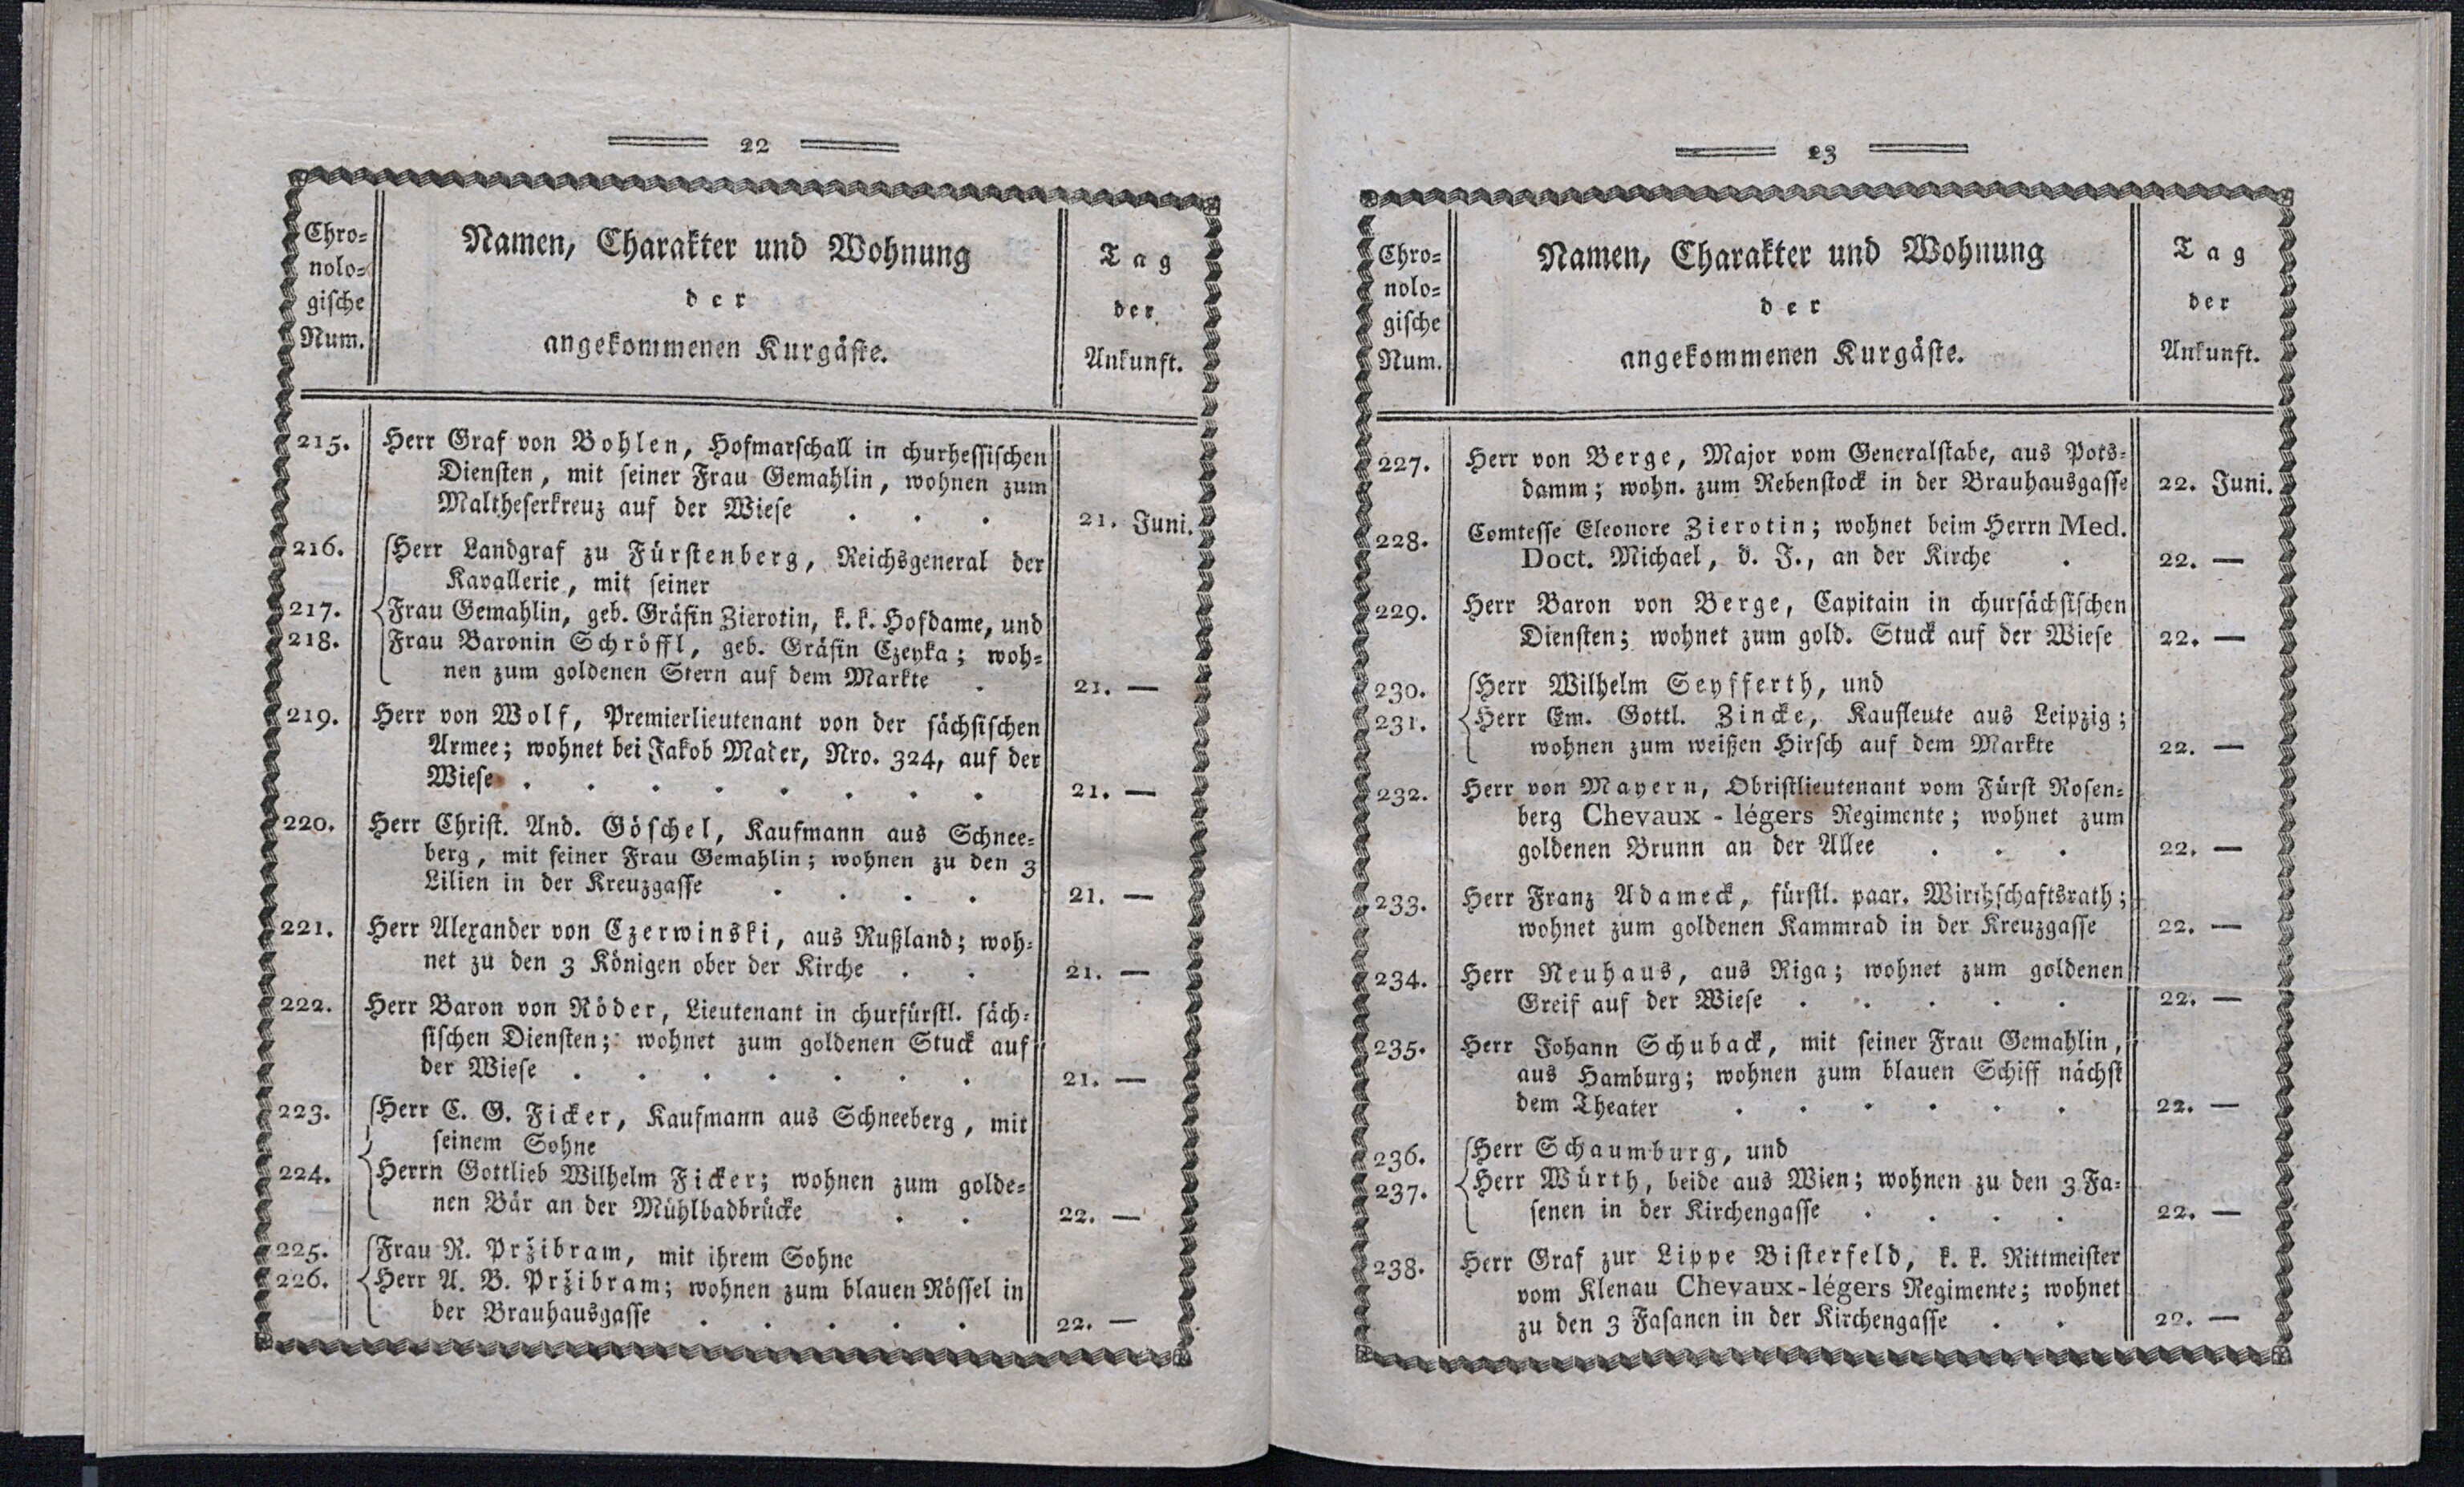 22
Chro-
nolo-
gische
Num.
Namen, Charakter und Wohnung
der
angekommenen Kurgäste.
Tag
der
Ankunft.
215. Herr Graf von Bohlen, Hofmarschall in churhessischen
Diensten, mit seiner Frau Gemahlin, wohnen zum
Maltheserkreuz auf der Wiese . . . 21. Juni.
216. Herr Landgraf zu Fürstenberg, Reichsgeneral der
Kavallerie, mit seiner
217. Frau Gemahlin, geb. Gräfin Zierotin, k. k. Hofdame, und
218. Frau Baronin Schröffl, geb. Gräfin Czeyka; woh-
nen zum goldenen Stern auf dem Markte . 21. —
219. Herr von Wolf, Premierlieutenant von der sächsischen
Armee; wohnet bei Jakob Mader, Nro. 324, auf der
Wiese . . . . . . . . 21. —
220. Herr Christ. And. Göschel, Kaufmann aus Schnee-
berg, mit seiner Frau Gemahlin; wohnen zu den 3
Lilien in der Kreuzgasse . . . . 21. —
221. Herr Alexander von Czerwinski, aus Rußland; woh-
net zu den 3 Königen ober der Kirche . . 21. —
222. Herr Baron von Röder, Lieutenant in churfürstl. säch-
sischen Diensten; wohnet zum goldenen Stuck auf
der Wiese . . . . . . . 21. —
223. Herr C. G. Ficker, Kaufmann aus Schneeberg, mit
seinem Sohne
224. Herrn Gottlieb Wilhelm Ficker; wohnen zum golde-
nen Bär an der Mühlbadbrücke . . 22. —
225. Frau R. Pržibram, mit ihrem Sohne
226. Herr A. B. Pržibram; wohnen zum blauen Rössel in
der Brauhausgasse . . . . . 22. —
23
Chro-
nolo-
gische
Num.
Namen, Charakter und Wohnung
der
angekommenen Kurgäste.
Tag
der
Ankunft.
227. Herr von Berge, Major vom Generalstabe, aus Pots-
damm; wohn. zum Rebenstock in der Brauhausgasse 22. Juni.
228. Comtesse Eleonore Zierotin; wohnet beim Herrn Med.
Doct. Michael, d. J., an der Kirche . 22. —
229. Herr Baron von Berge, Capitain in chursächsischen
Diensten; wohnet zum gold. Stuck auf der Wiese 22. —
230. Herr Wilhelm Seyfferth, und
231. Herr Em. Gottl. Zincke, Kaufleute aus Leipzig;
wohnen zum weißen Hirsch auf dem Markte 22. —
232. Herr von Mayern, Obristlieutenant vom Fürst Rosen-
berg Chevaux-légers Regimente; wohnet zum
goldenen Brunn an der Allee . . . 22. —
233. Herr Franz Adameck, fürstl. paar. Wirthschaftsrath;
wohnet zum goldenen Kammrad in der Kreuzgasse 22. —
234. Herr Neuhaus, aus Riga; wohnet zum goldenen
Greif auf der Wiese . . . . . 22. —
235. Herr Johann Schuback, mit seiner Frau Gemahlin,
aus Hamburg; wohnen zum blauen Schiff nächst
dem Theater . . . . . . 22. —
236. Herr Schaumburg, und
237. Herr Würth, beide aus Wien; wohnen zu den 3 Fa-
senen in der Kirchengasse . . . . 22. —
238. Herr Graf zur Lippe Bisterfeld, k. k. Rittmeister
vom Klenau Chevaux-légers Regimente; wohnet
zu den 3 Fasanen in der Kirchengasse . . 22. —